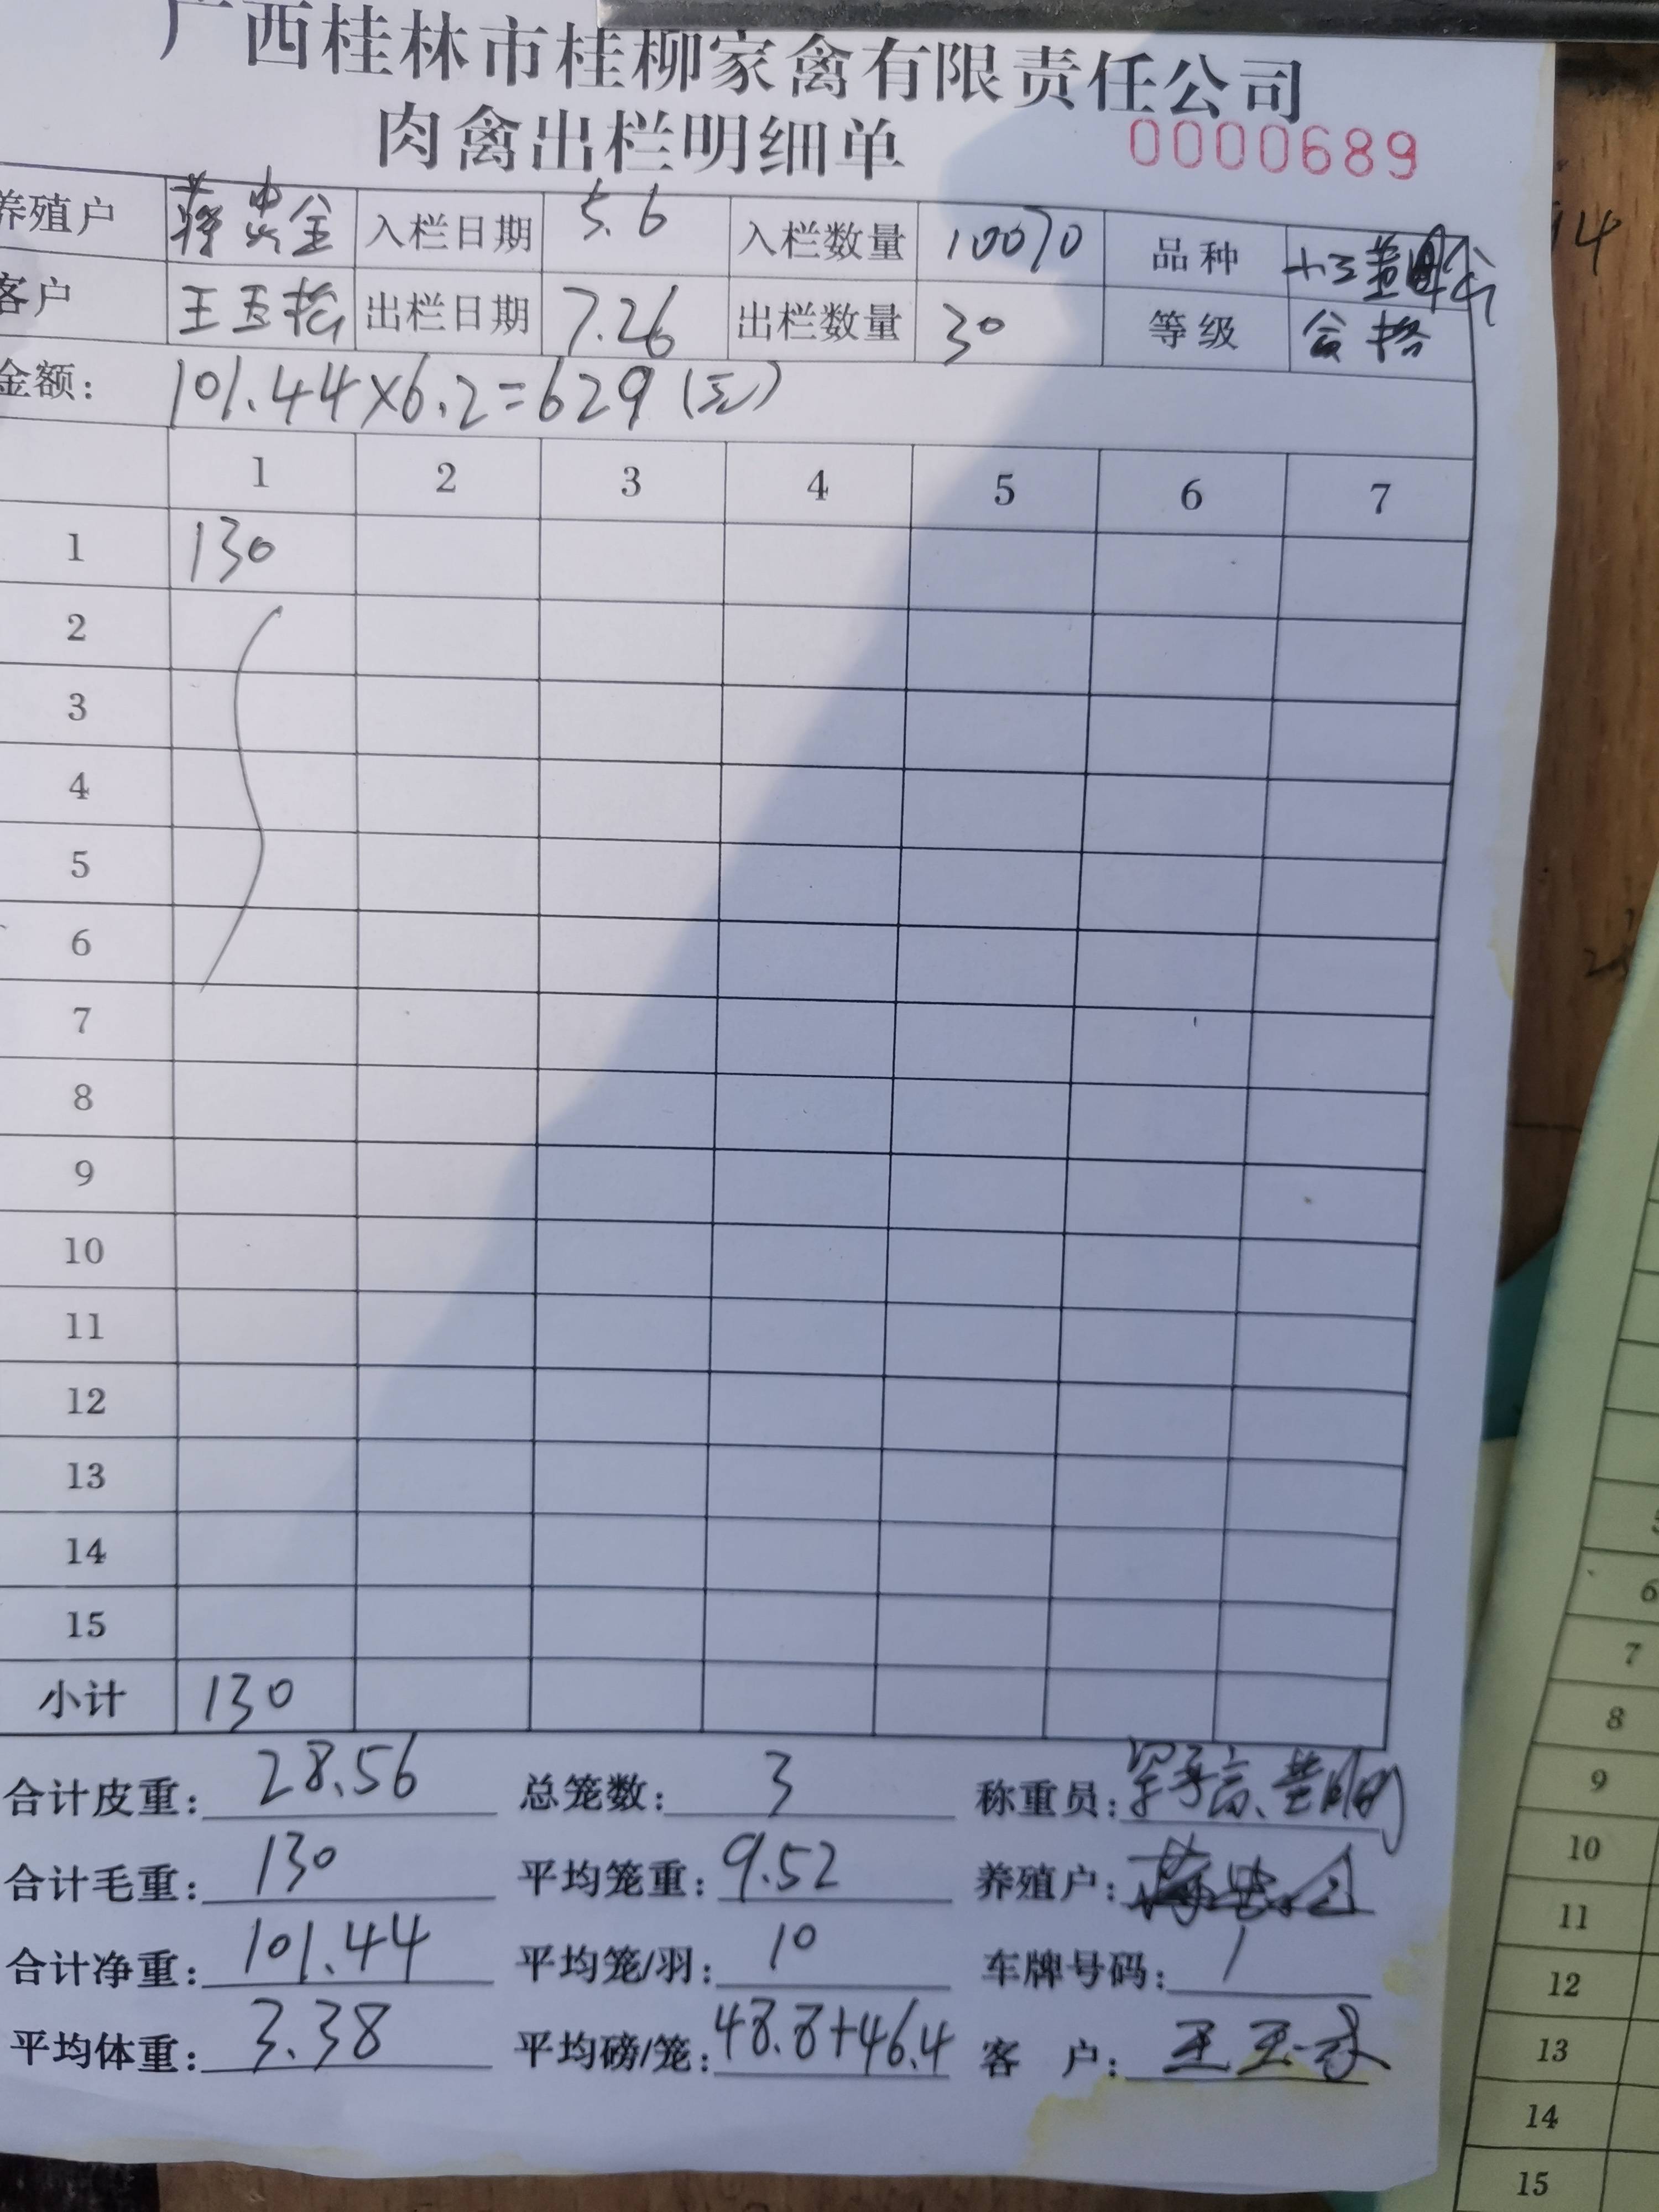 广西桂林市桂柳家禽有限责任公司
肉禽出栏明细单 0000689
养殖户 蒋忠金 入栏日期 5.6 入栏数量 10070 品种
客户 王玉松 出栏日期 7.26 出栏数量 30 等级 合格
金额: 101.44×6.2=629(元)
1 2 3 4 5 6 7
1 130
2
3
4
5
6
7
8
9
10
11
12
13
14
15
小计 130
合计皮重: 28.56 总笼数: 3 称重员:
合计毛重: 130 平均笼重: 9.52 养殖户: 蒋忠金
合计净重: 101.44 平均笼/羽: 10 车牌号码: /
平均体重: 3.38 平均磅/笼: 48.8+46.4 客 户:
14
6
7
8
9
10
11
12
13
14
15